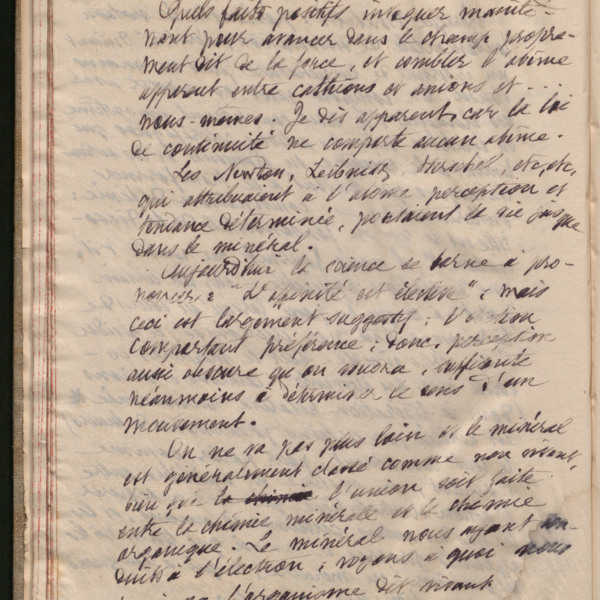 Quels faits positifs invoquer mainte-
nant pour avancer dans le champ propre-
ment dit de la force, et combler l'abîme
apparent entre cathions et anions et ...
nous-mêmes. Je dis apparent, car la loi
de continuité ne comporte aucun abîme.
Les Newton, Leibnitz, Herschel, etc, etc,
qui attribuaient à l'atome perception et
tendance déterminée, portaient la vie jusque
dans le minéral.
Aujourd'hui la science se borne à pro-
noncer : "L'affinité est élective", mais
ceci est largement suggestif :
comportant préférence ; donc, perception
aussi obscure qu'on voudra, suffisante
néanmoins à déterminer le sens d'un
mouvement.
On ne va pas plus loin et le minéral
est généralement classé comme non vivant,
bien que la chimie l'union soit faite
entre la chimie minérale et la chimie
organique. Le minéral nous ayant con-
duits à l'élection ; voyons à quoi nous
l'organisme dit vivant